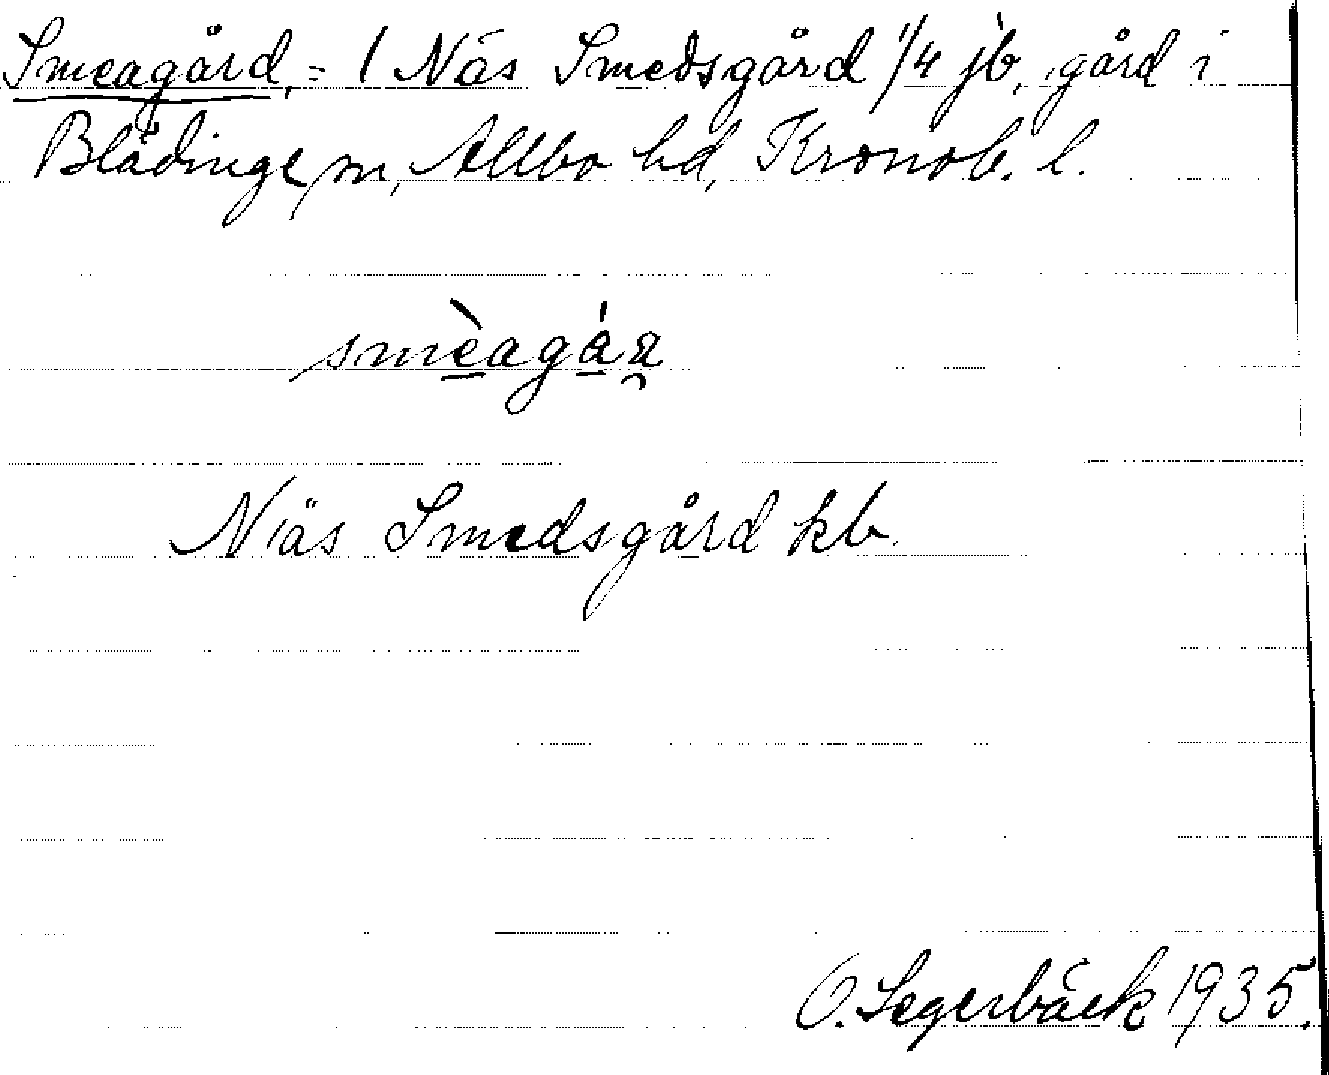 Smeagård, = / Näs Smedsgård 1/4 jb, gård i
Blädinge sn, Allbo hd, Kronob. l.
smèagár
Näs Smedsgård kb.
O. Segerbäck 1935.